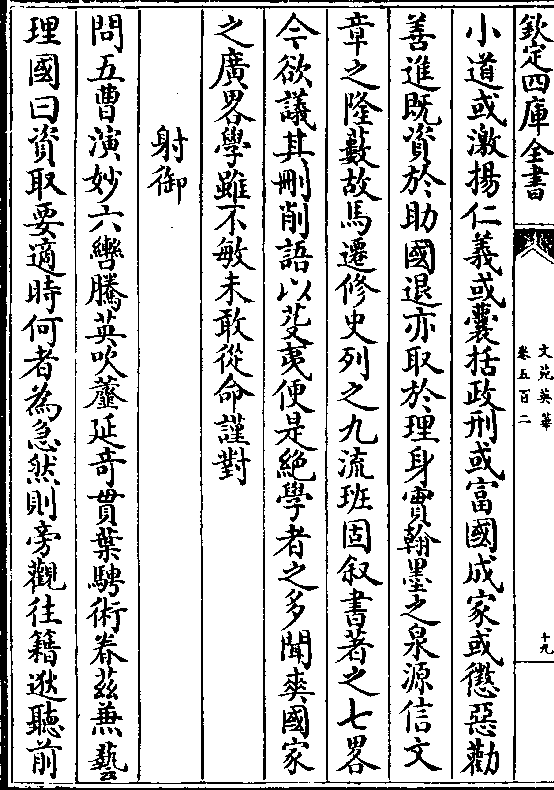 欽定四庫全書
文苑英華
卷五百二
十九
小道或激揚仁義或囊括政刑或富國成家或懲惡勸
善進既資於助國退亦取於理身實翰墨之泉源信文
章之隆藪故馬遷修史列之九流班固叙書著之七畧
今欲議其刪削語以芟夷便是絶學者之多聞爽國家
之廣畧學雖不敏未敢從命謹對
射御
問五曹演妙六轡騰英吹虀延竒貫葉騁術眷茲兼藝
理國曰資取要適時何者為急然則旁觀往籍逖聽前